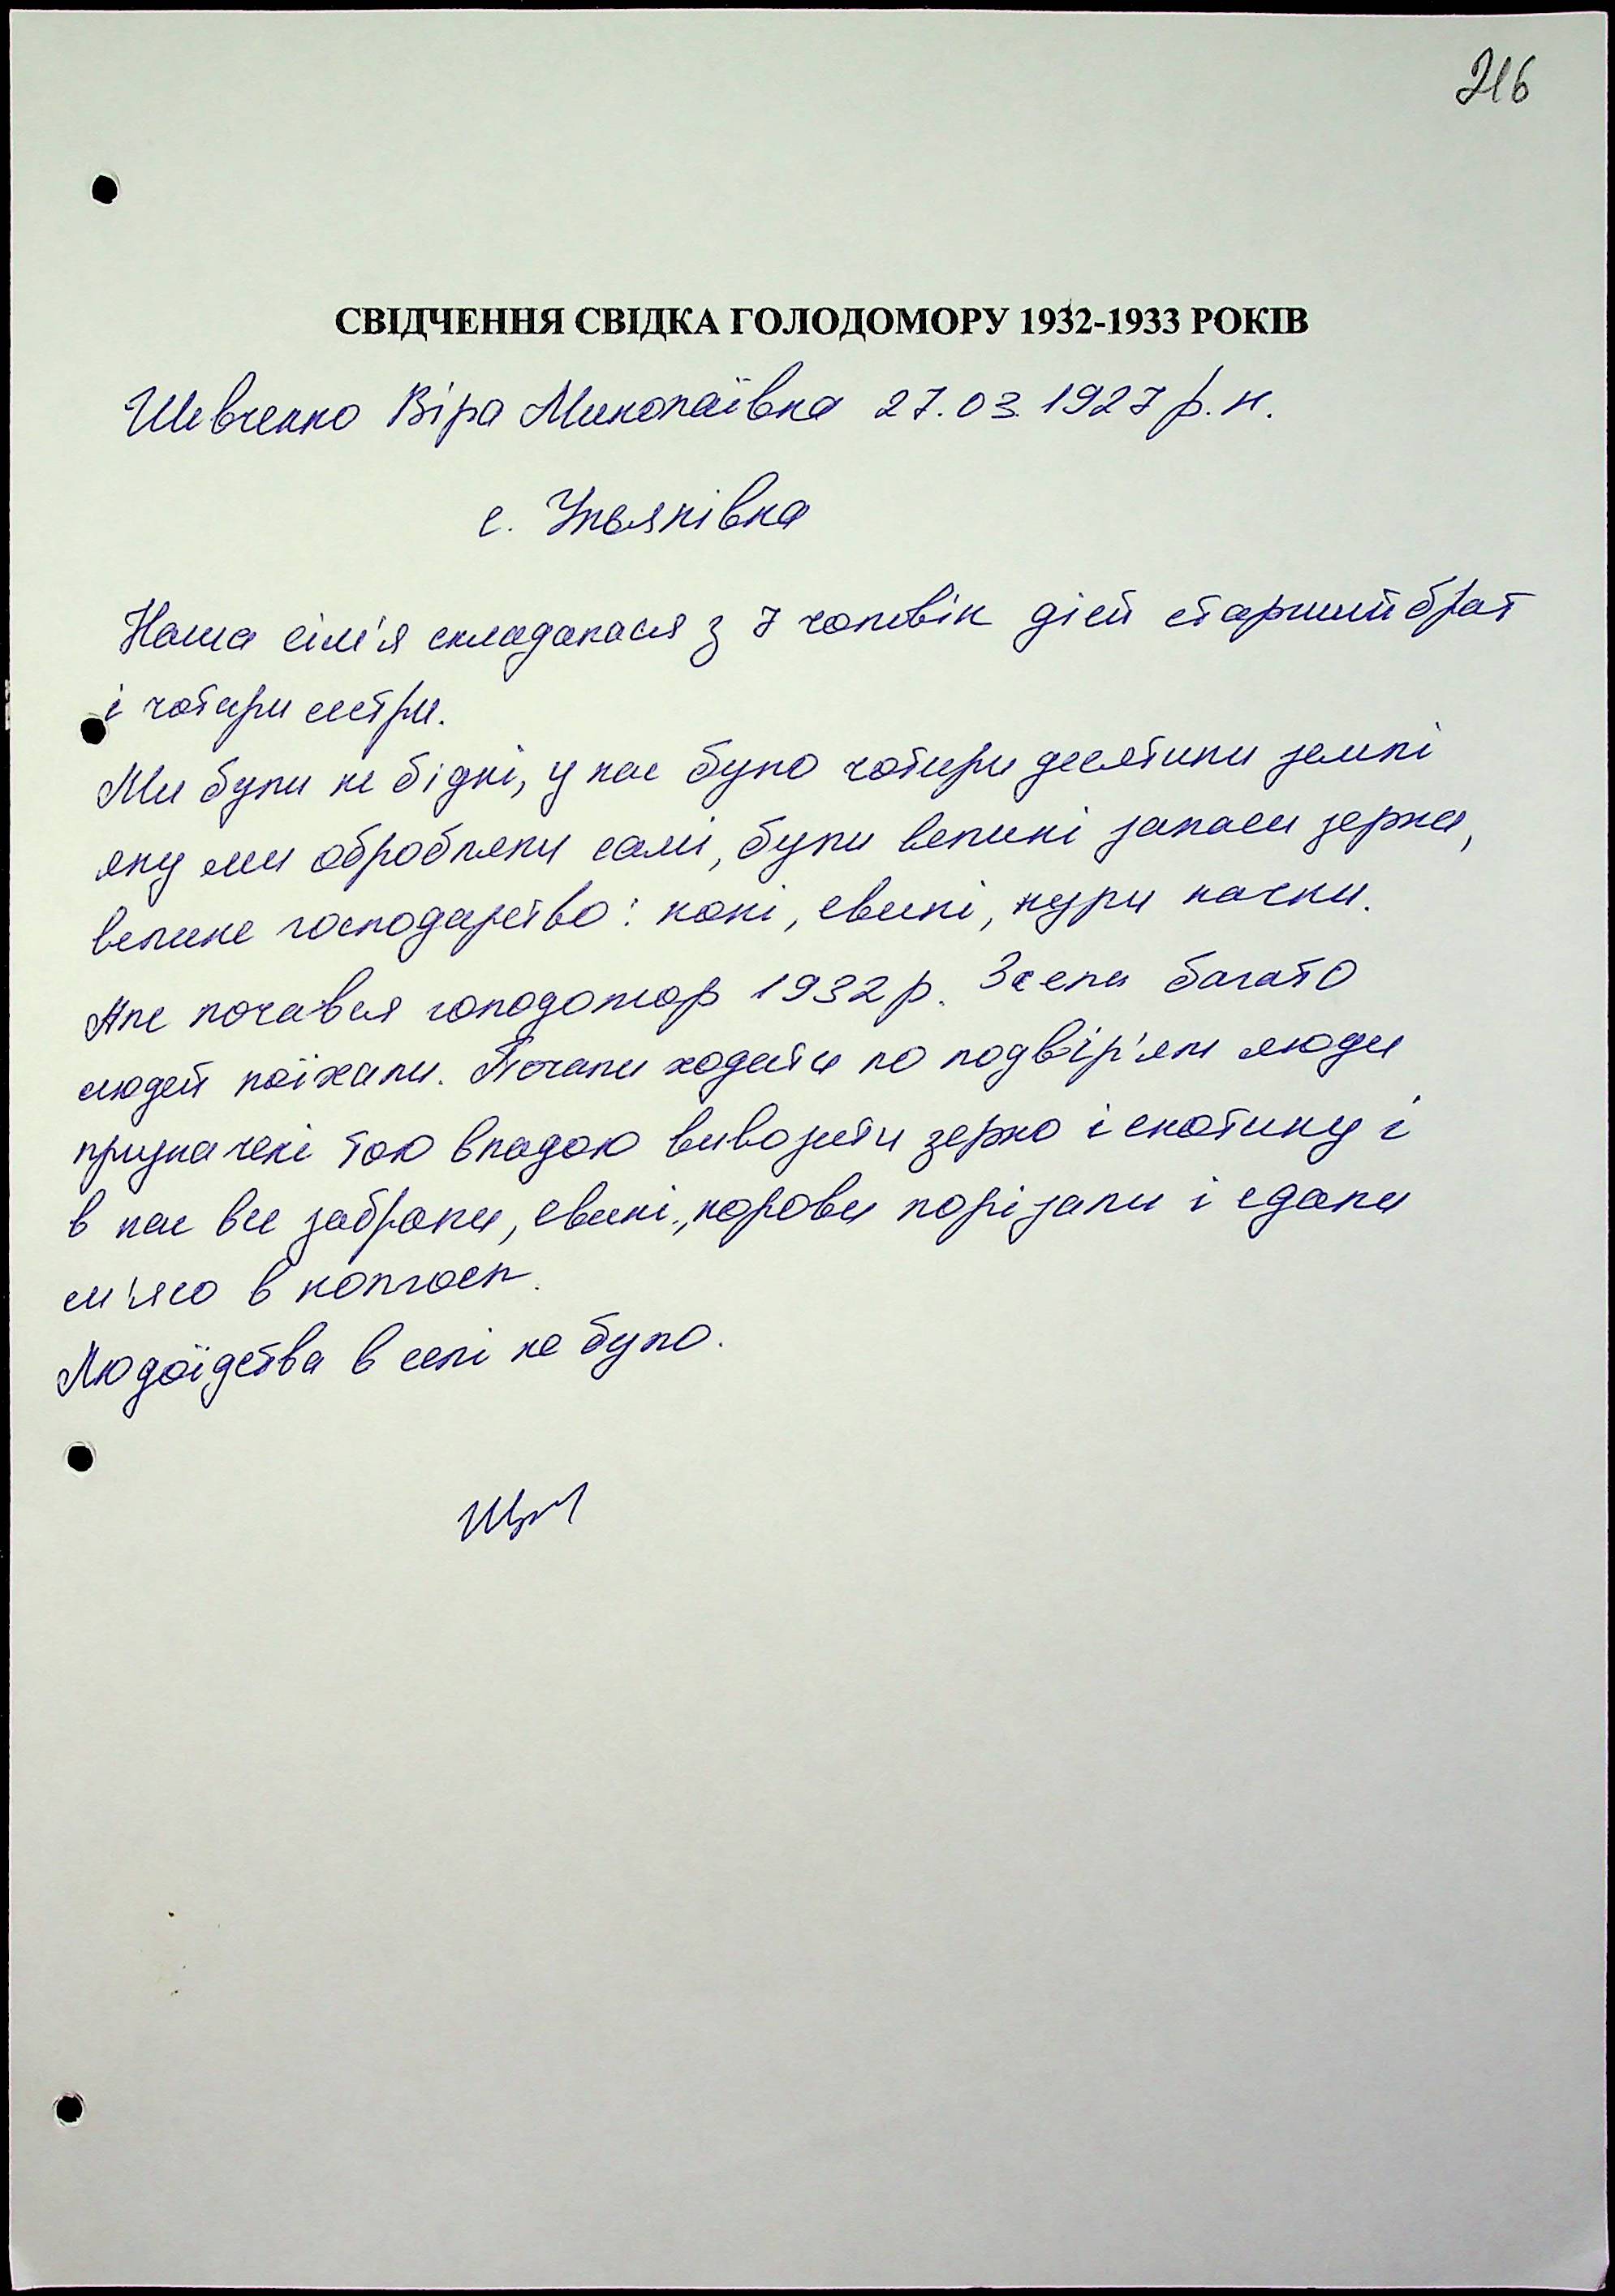 216
СВІДЧЕННЯ СВІДКА ГОЛОДОМОРУ 1932-1933 РОКІВ
Шевченко Віра Миколаївна 27.03.1927 р.н.
с. Ульянівка
Наша сім'я складалася з 7 чоловік дітей старший брат
і чотири сестри.
Ми були не бідні, у нас було чотири десятини землі
яку ми обробляли самі, були великі запаси зерна,
велике господарство: коні, свині, кури качки.
Але почався голодомор 1932 р. З села багато
людей поїхали. Почали ходити по подвір'ям люди
призначені тою владою вивозити зерно і скотину і
в нас все забрали, свині, корови порізали і здали
м'ясо в колгосп.
Людоїдства в селі не було.